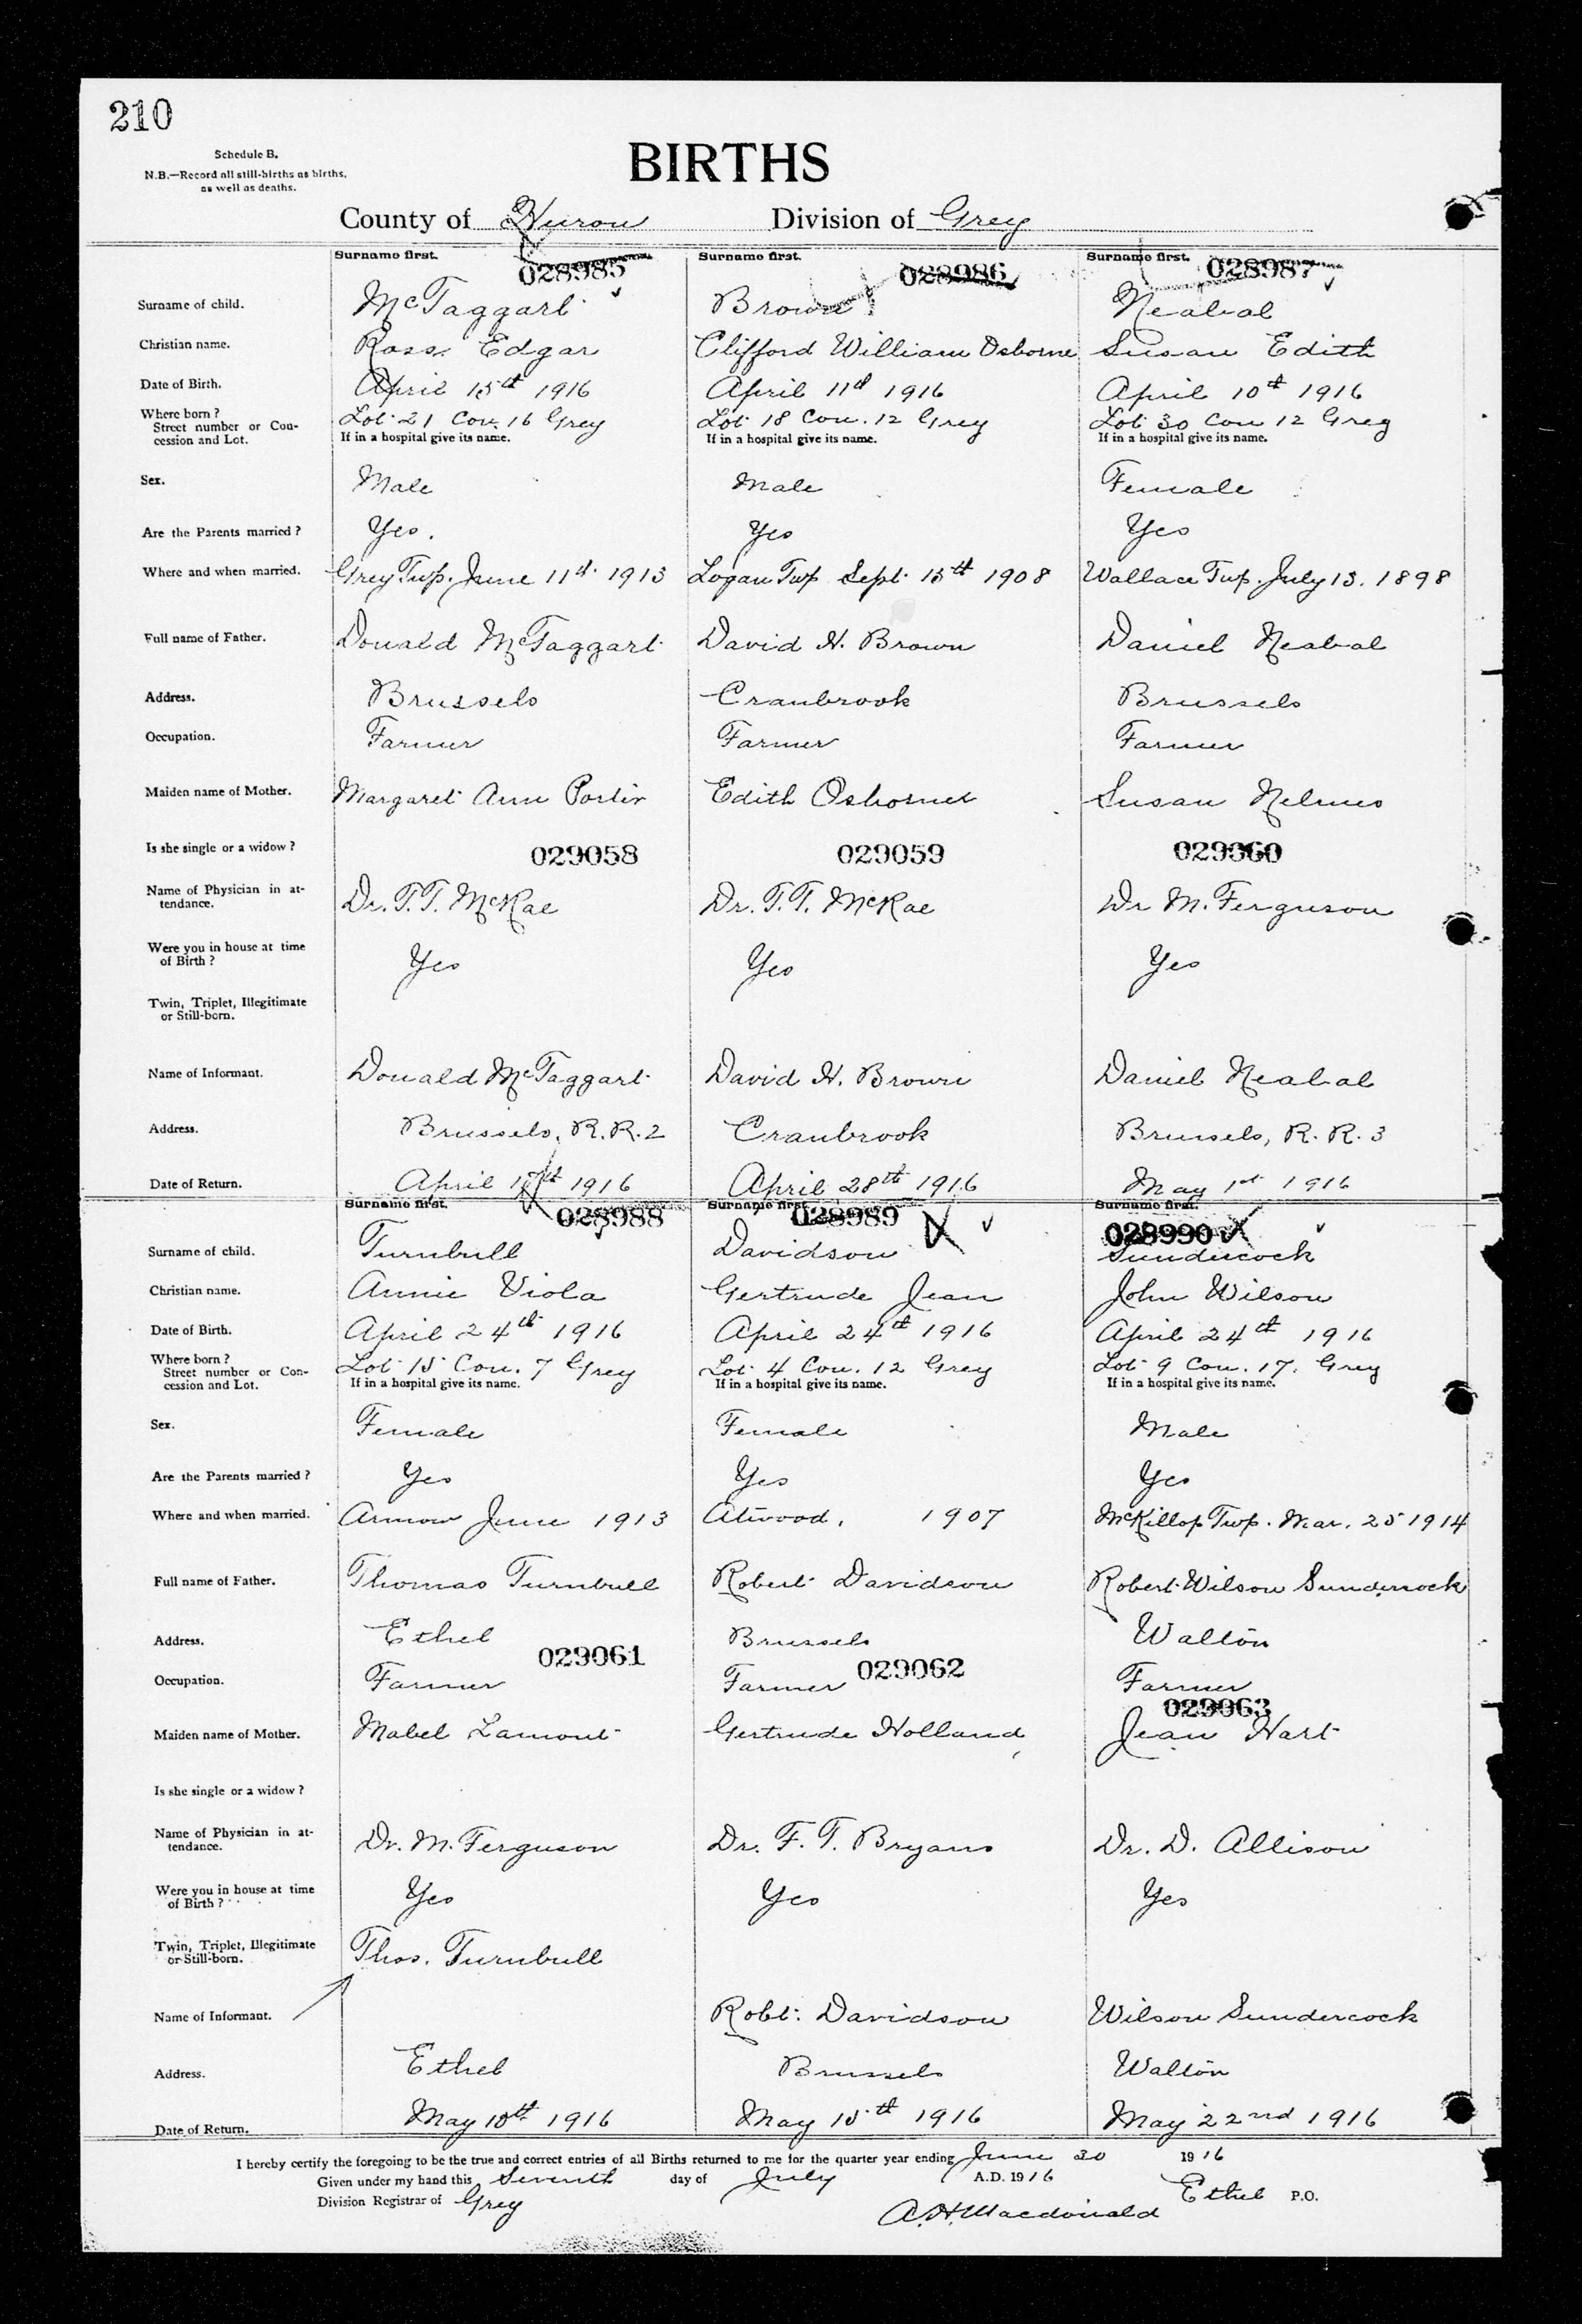 210
Schedule B.
N.B.—Record all still-births as births,
as well as deaths.
BIRTHS
County of Huron Division of Grey
Surname first. 028985 Surname first. 028986 Surname first. 028987
Surname of child. McTaggart Brown Neabal
Christian name. Ross Edgar Clifford William Osborne Susan Edith
Date of Birth. April 15th 1916 April 11th 1916 April 10th 1916
Where born? Street number or Con- cession and Lot. Lot 21 Con. 16 Grey Lot 18 Con. 12 Grey Lot 30 Con 12 Grey
If in a hospital give its name. If in a hospital give its name. If in a hospital give its name.
Sex. Male Male Female
Are the Parents married? Yes. Yes Yes
Where and when married. Grey Twp. June 11th 1913 Logan Twp Sept 15th 1908 Wallace Twp. July 13. 1898
Full name of Father. Donald McTaggart David H. Brown Daniel Neabal
Address. Brussels Cranbrook Brussels
Occupation. Farmer Farmer Farmer
Maiden name of Mother. Margaret Ann Porter Edith Osborne Susan
Is she single or a widow? 029058 029059 029060
Name of Physician in at- tendance. Dr. T.T. McRae Dr. T.T. McRae Dr M. Ferguson
Were you in house at time of Birth? Yes Yes Yes
Twin, Triplet, Illegitimate or Still-born.
Name of Informant. Donald McTaggart David H. Brown Daniel Neabal
Address. Brussels, R.R. 2 Cranbrook Brussels, R. R. 3
Date of Return. April 1916 April 28th 1916 May 1st 1916
Surname first. 028988 Surname first. 028989 Surname first. 028990
Surname of child. Turnbull Davidson Sundercock
Christian name. Annie Viola Gertrude Jean John Wilson
Date of Birth. April 24th 1916 April 24th 1916 April 24th 1916
Where born? Street number or Con- cession and Lot. Lot 15 Con. 7 Grey Lot 4 Con. 12 Grey Lot 9 Con. 17. Grey
If in a hospital give its name. If in a hospital give its name. If in a hospital give its name.
Sex. Female Female Male
Are the Parents married? Yes Yes Yes
Where and when married. Armow June 1913 Atwood, 1907 McKillop Twp. Mar. 25 1914
Full name of Father. Thomas Turnbull Robert Davidson Robert Wilson Sundercock
Address. Ethel Brussels Walton
029061 029062
Occupation. Farmer Farmer Farmer
029063
Maiden name of Mother. Mabel Lamont Gertrude Holland Jean Hart
Is she single or a widow?
Name of Physician in at- tendance. Dr. M. Ferguson Dr. F. T. Bryans Dr. D. Allison
Were you in house at time of Birth? Yes Yes Yes
Twin, Triplet, Illegitimate or Still-born. Thos. Turnbull
Name of Informant. Robt. Davidson Wilson Sundercock
Address. Ethel Brussels Walton
Date of Return. May 10th 1916 May 15th 1916 May 22nd 1916
I hereby certify the foregoing to be the true and correct entries of all Births returned to me for the quarter year ending June 30 1916
Given under my hand this Seventh day of July A.D. 1916
Division Registrar of Grey A. H. Macdonald Ethel P.O.